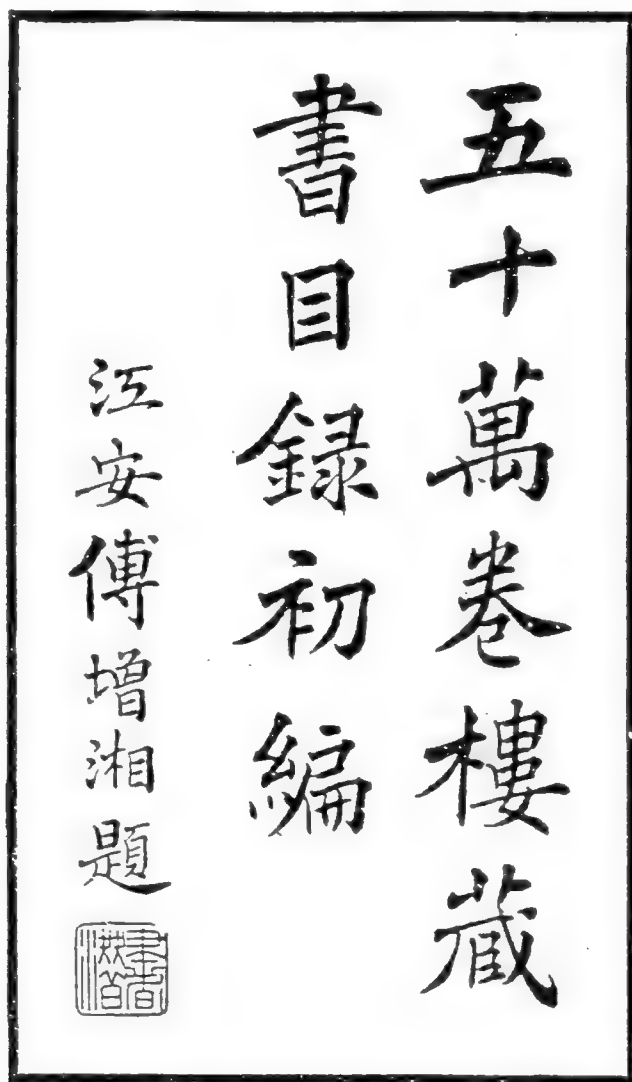 五十萬卷樓藏
書目録初編
江安傅增湘題